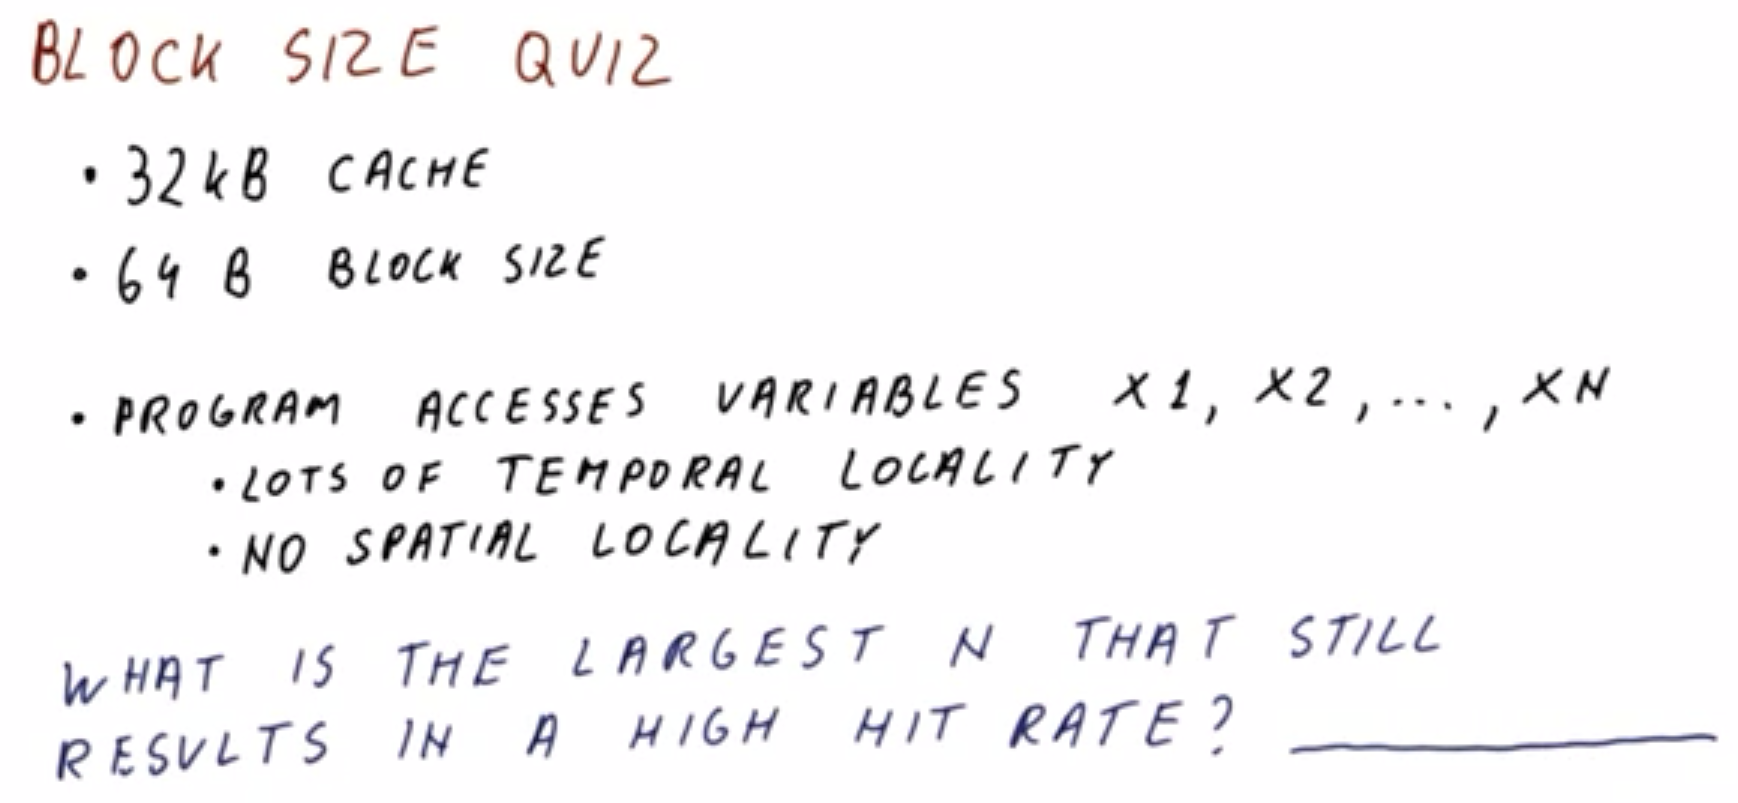 BLOCK SIZE QUIZ
• 32kB CACHE
• 64 B BLOCK SIZE
• PROGRAM ACCESSES VARIABLES X1, X2, ..., XN
• LOTS OF TEMPORAL LOCALITY
• NO SPATIAL LOCALITY
WHAT IS THE LARGEST N THAT STILL
RESULTS IN A HIGH HIT RATE?